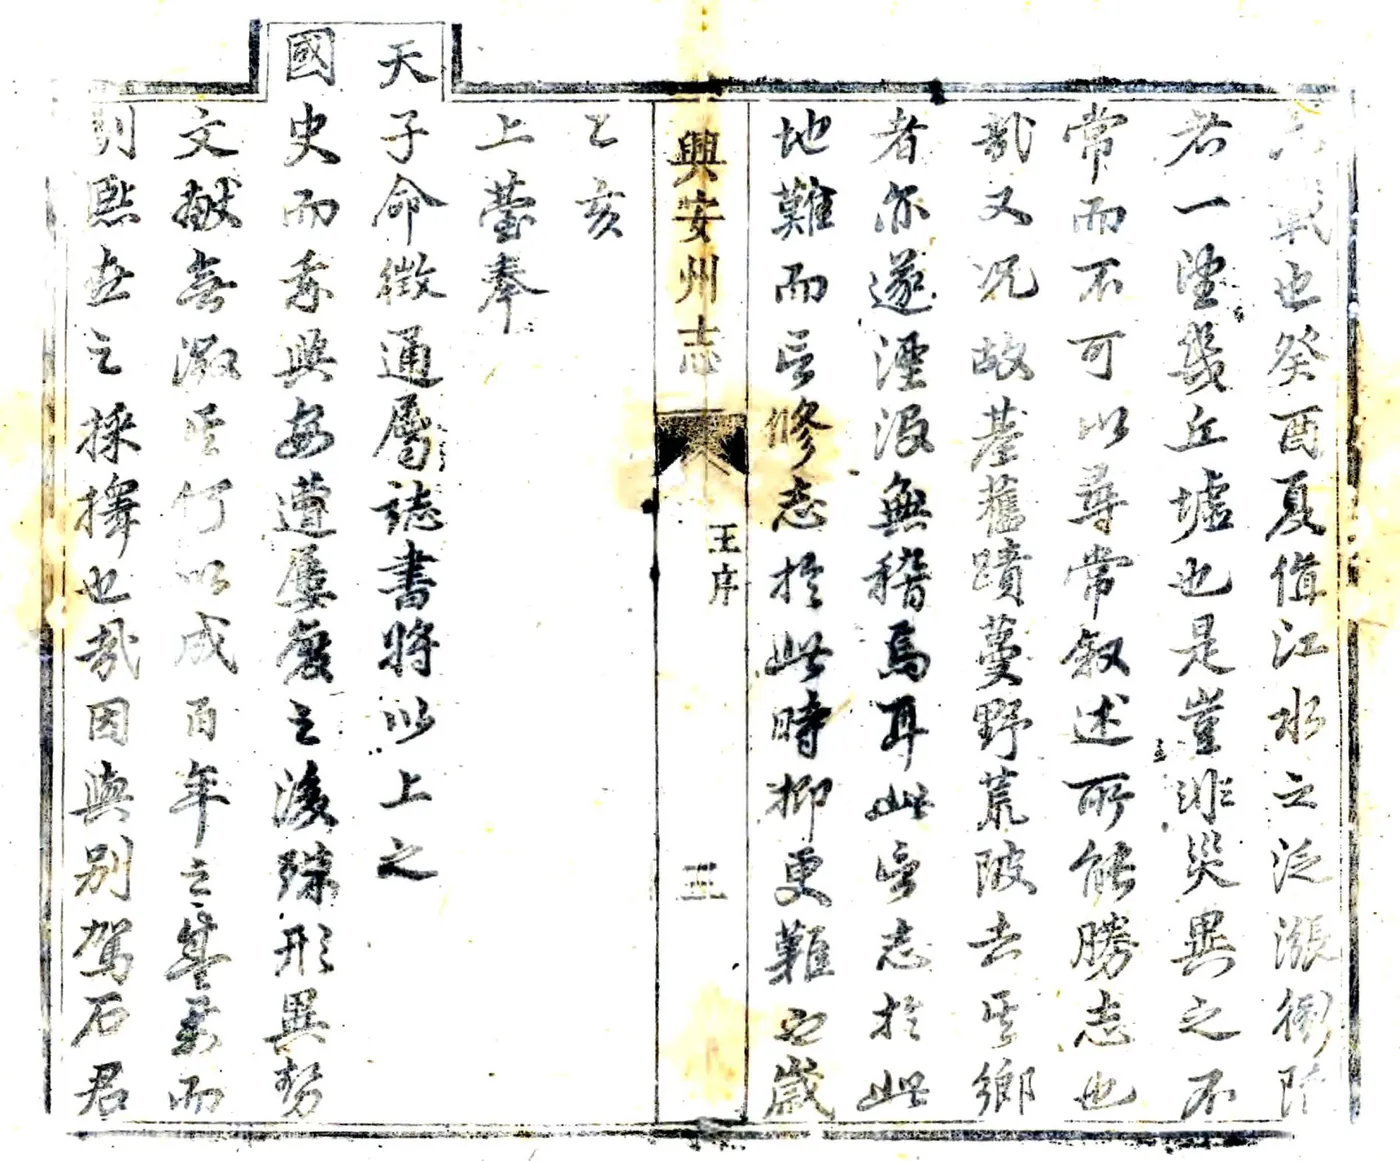 戰也癸酉夏值江水之泛漲衝陸
若一望幾丘墟也是豈非災異之不
常而不可以尋常叙述所能勝志也
哉又况故基舊蹟蔓野荒陂去其鄉
者亦遂湮沒無稽焉耳此言志於此
地難而言修志於此時抑更難也歲
興安州志
王序
三
乙亥
上臺奉
天子命徵通屬誌書將以上之
國史而秦興安遭屢廢之後殊形異勢
文獻無徵其何以成百年之舉而
別無之採擇也哉因與別駕石君